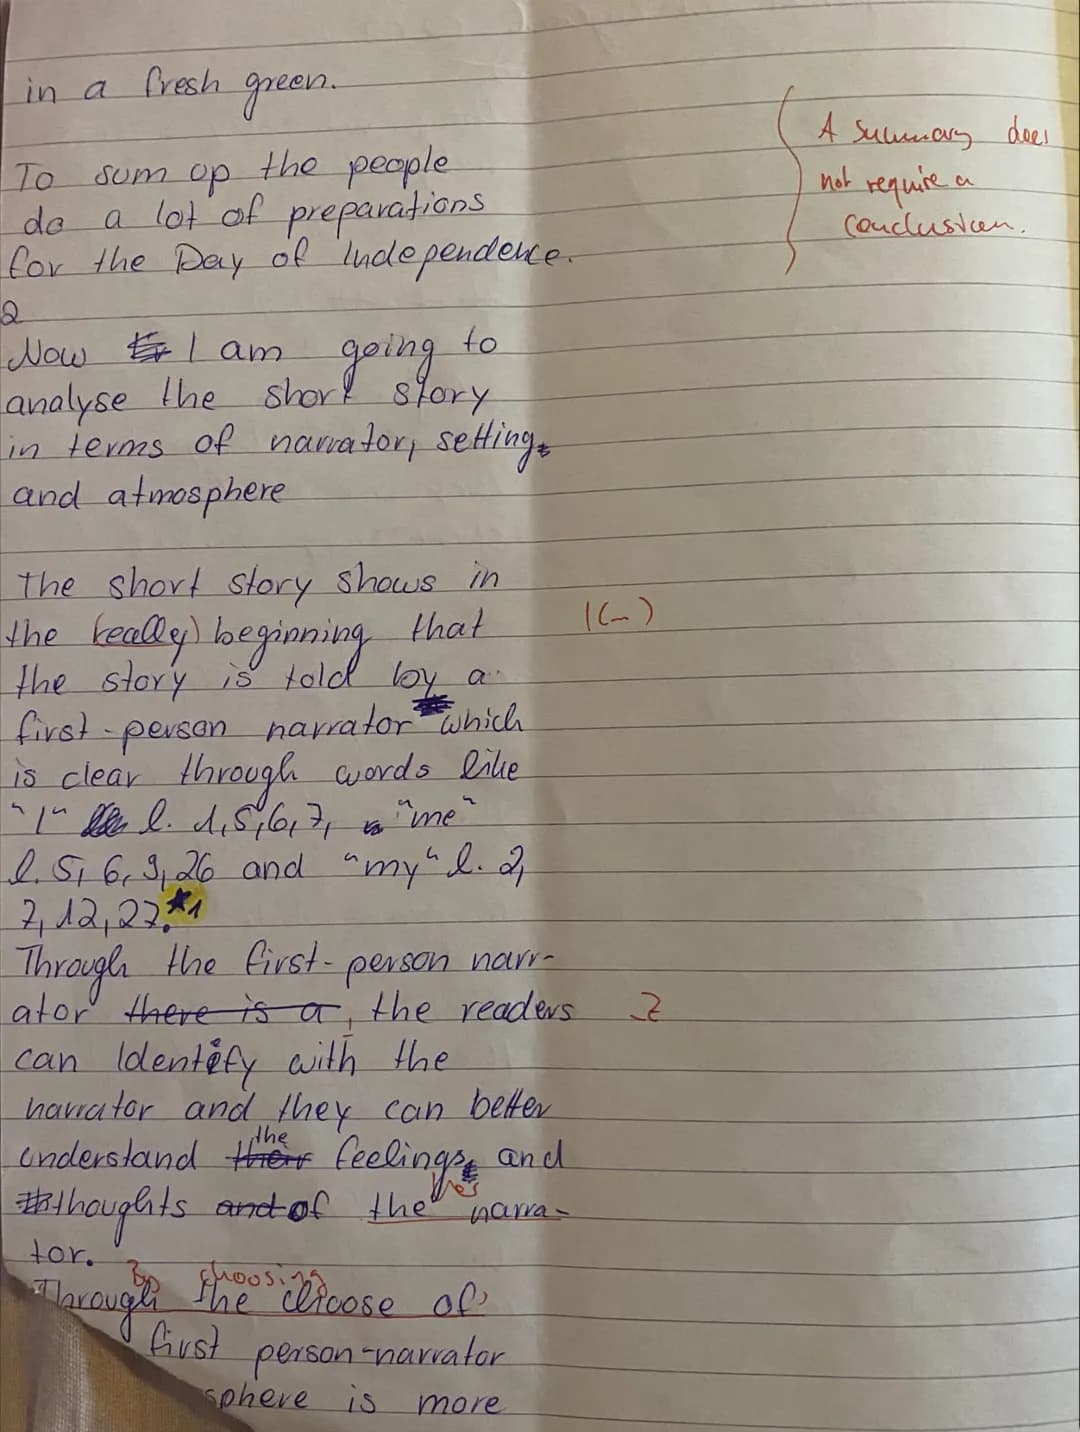 in a fresh green.
A summary does
not require a
conclusion.
To sum op the people
do a lot of preparations
for the Day of Independence.
2
Now I am going to
analyse the short story
in terms of narrator, setting
and atmosphere
The short story shows in
the (really) beginning that
1(-)
the story is told by a
first-person narrator which
is clear through words like
"I" l. 1,5,6,7, "me"
l. 5, 6, 9, 26 and "my" l. 2,
7, 12, 27.*1
Through the first-person narr-
ator there is a, the readers
Z
can Identify with the
narrator and they can better
the
understand their feelings and
thoughts and of the narra-
tor.
By choosing
Through the choose of
first person-narrator
sphere is more